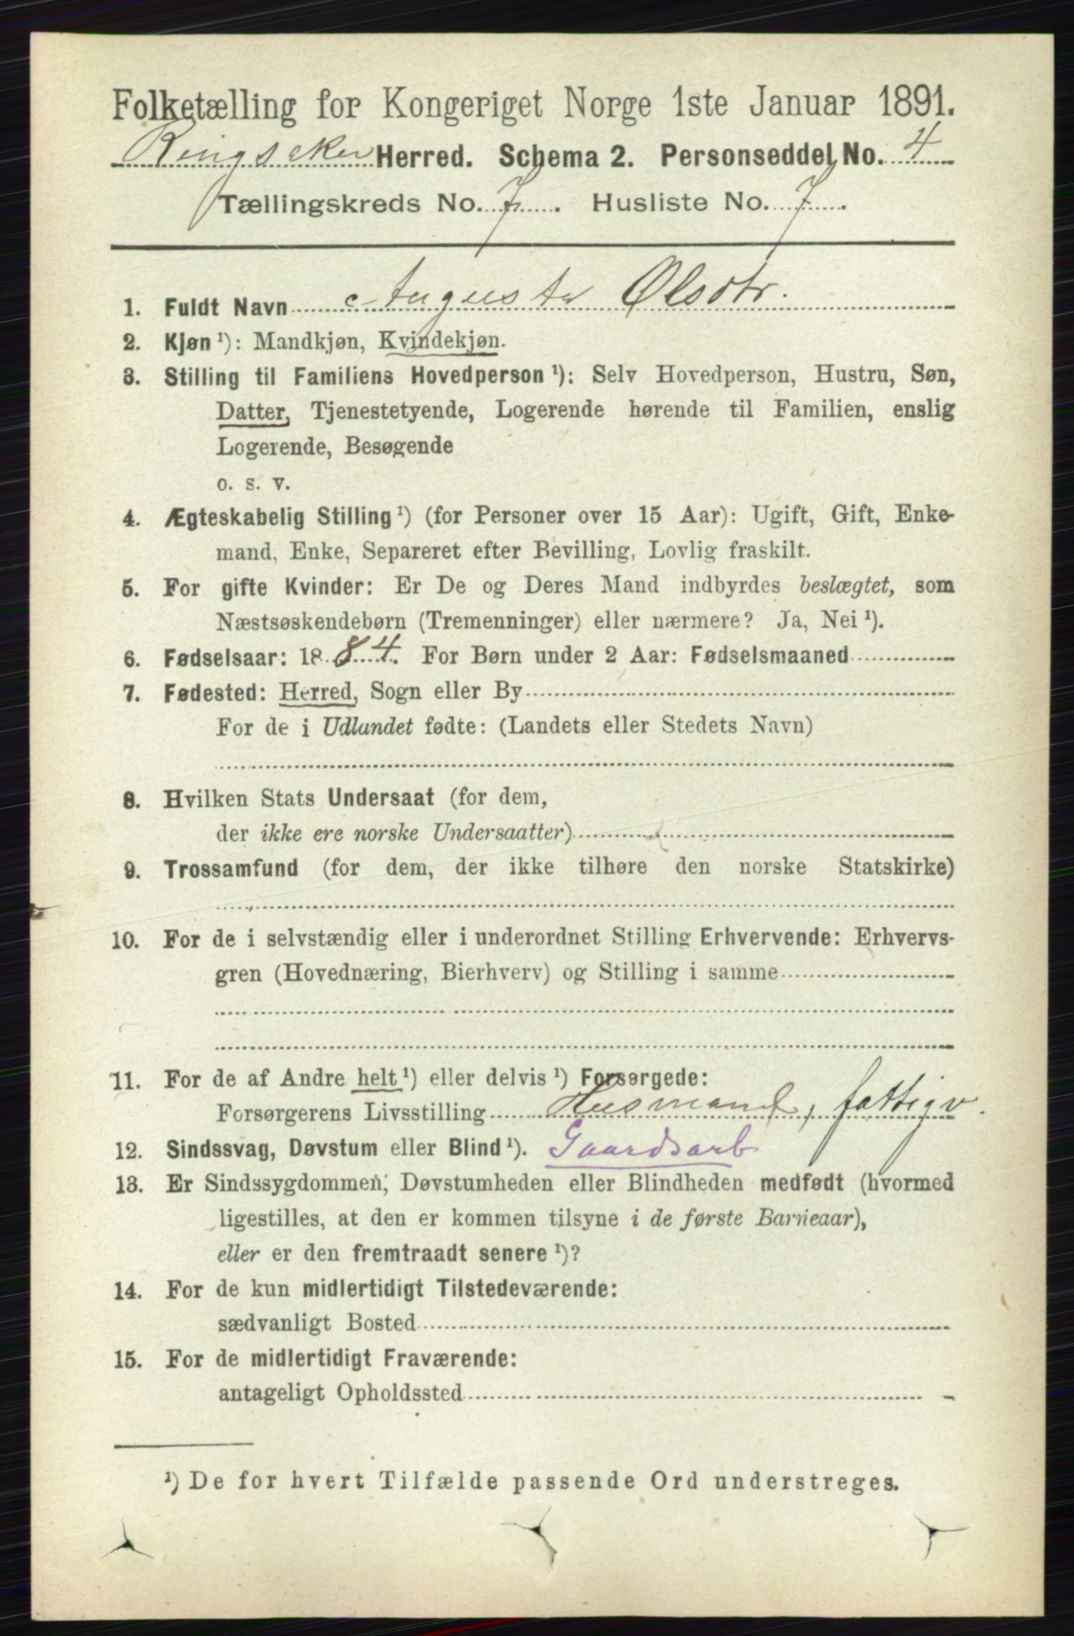 Folketælling for Kongeriget Norge 1ste Januar 1891.
Ringsaker Herred. Schema 2. Personseddel No. 4
Tællingskreds No. 7. Husliste No. 7.
1. Fuldt Navn Augusta Olsdtr.
2. Kjøn ¹): Mandkjøn, Kvindekjøn.
3. Stilling til Familiens Hovedperson ¹): Selv Hovedperson, Hustru, Søn,
Datter, Tjenestetyende, Logerende hørende til Familien, enslig
Logerende, Besøgende
o. s. v.
4. Ægteskabelig Stilling ¹) (for Personer over 15 Aar): Ugift, Gift, Enke-
mand, Enke, Separeret efter Bevilling, Lovlig fraskilt.
5. For gifte Kvinder: Er De og Deres Mand indbyrdes beslægtet, som
Næstsøskendebørn (Tremenninger) eller nærmere? Ja, Nei ¹).
6. Fødselsaar: 1884. For Børn under 2 Aar: Fødselsmaaned
7. Fødested: Herred, Sogn eller By
For de i Udlandet fødte: (Landets eller Stedets Navn)
8. Hvilken Stats Undersaat (for dem,
der ikke ere norske Undersaatter)
9. Trossamfund (for dem, der ikke tilhøre den norske Statskirke)
10. For de i selvstændig eller i underordnet Stilling Erhvervende: Erhvervs-
gren (Hovednæring, Bierhverv) og Stilling i samme
11. For de af Andre helt ¹) eller delvis ¹) Forsørgede:
Forsørgerens Livsstilling Husmand, fattigv.
12. Sindssvag, Døvstum eller Blind ¹). Gaardsarb
13. Er Sindssygdommen, Døvstumheden eller Blindheden medfødt (hvormed
ligestilles, at den er kommen tilsyne i de første Barneaar),
eller er den fremtraadt senere ¹)?
14. For de kun midlertidigt Tilstedeværende:
sædvanligt Bosted
15. For de midlertidigt Fraværende:
antageligt Opholdssted
¹) De for hvert Tilfælde passende Ord understreges.